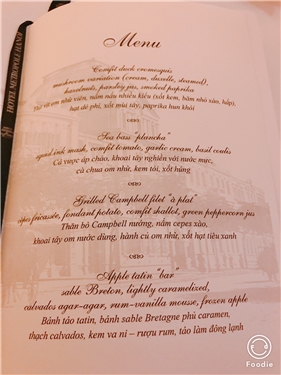 HOTEL METROPOLE HANOI
Menu
Comfit duck cromesquis
mushroom variation (cream, duxelle, steamed),
hazelnuts, parsley jus, smoked paprika
Thịt vịt om nhừ viên, nấm nấu nhiều kiểu (xốt kem, băm nhỏ xào, hấp),
hạt dẻ phỉ, xốt mùi tây, paprika hun khói
Sea bass "plancha"
squid ink mash, comfit tomato, garlic cream, basil coulis
Cá vược áp chảo, khoai tây nghiền với nước mực,
cà chua om nhừ, kem tỏi, xốt húng
Grilled Campbell filet "à plat"
cèpes fricassée, fondant potato, comfit shallot, green peppercorn jus
Thăn bò Campbell nướng, nấm cepes xào,
khoai tây om nước dùng, hành củ om nhừ, xốt hạt tiêu xanh
Apple tatin "bar"
sable Breton, lightly caramelized,
calvados agar-agar, rum-vanilla mousse, frozen apple
Bánh táo tatin, bánh sable Bretagne phủ caramen,
thạch calvados, kem va ni – rượu rum, táo làm đông lạnh
Foodie